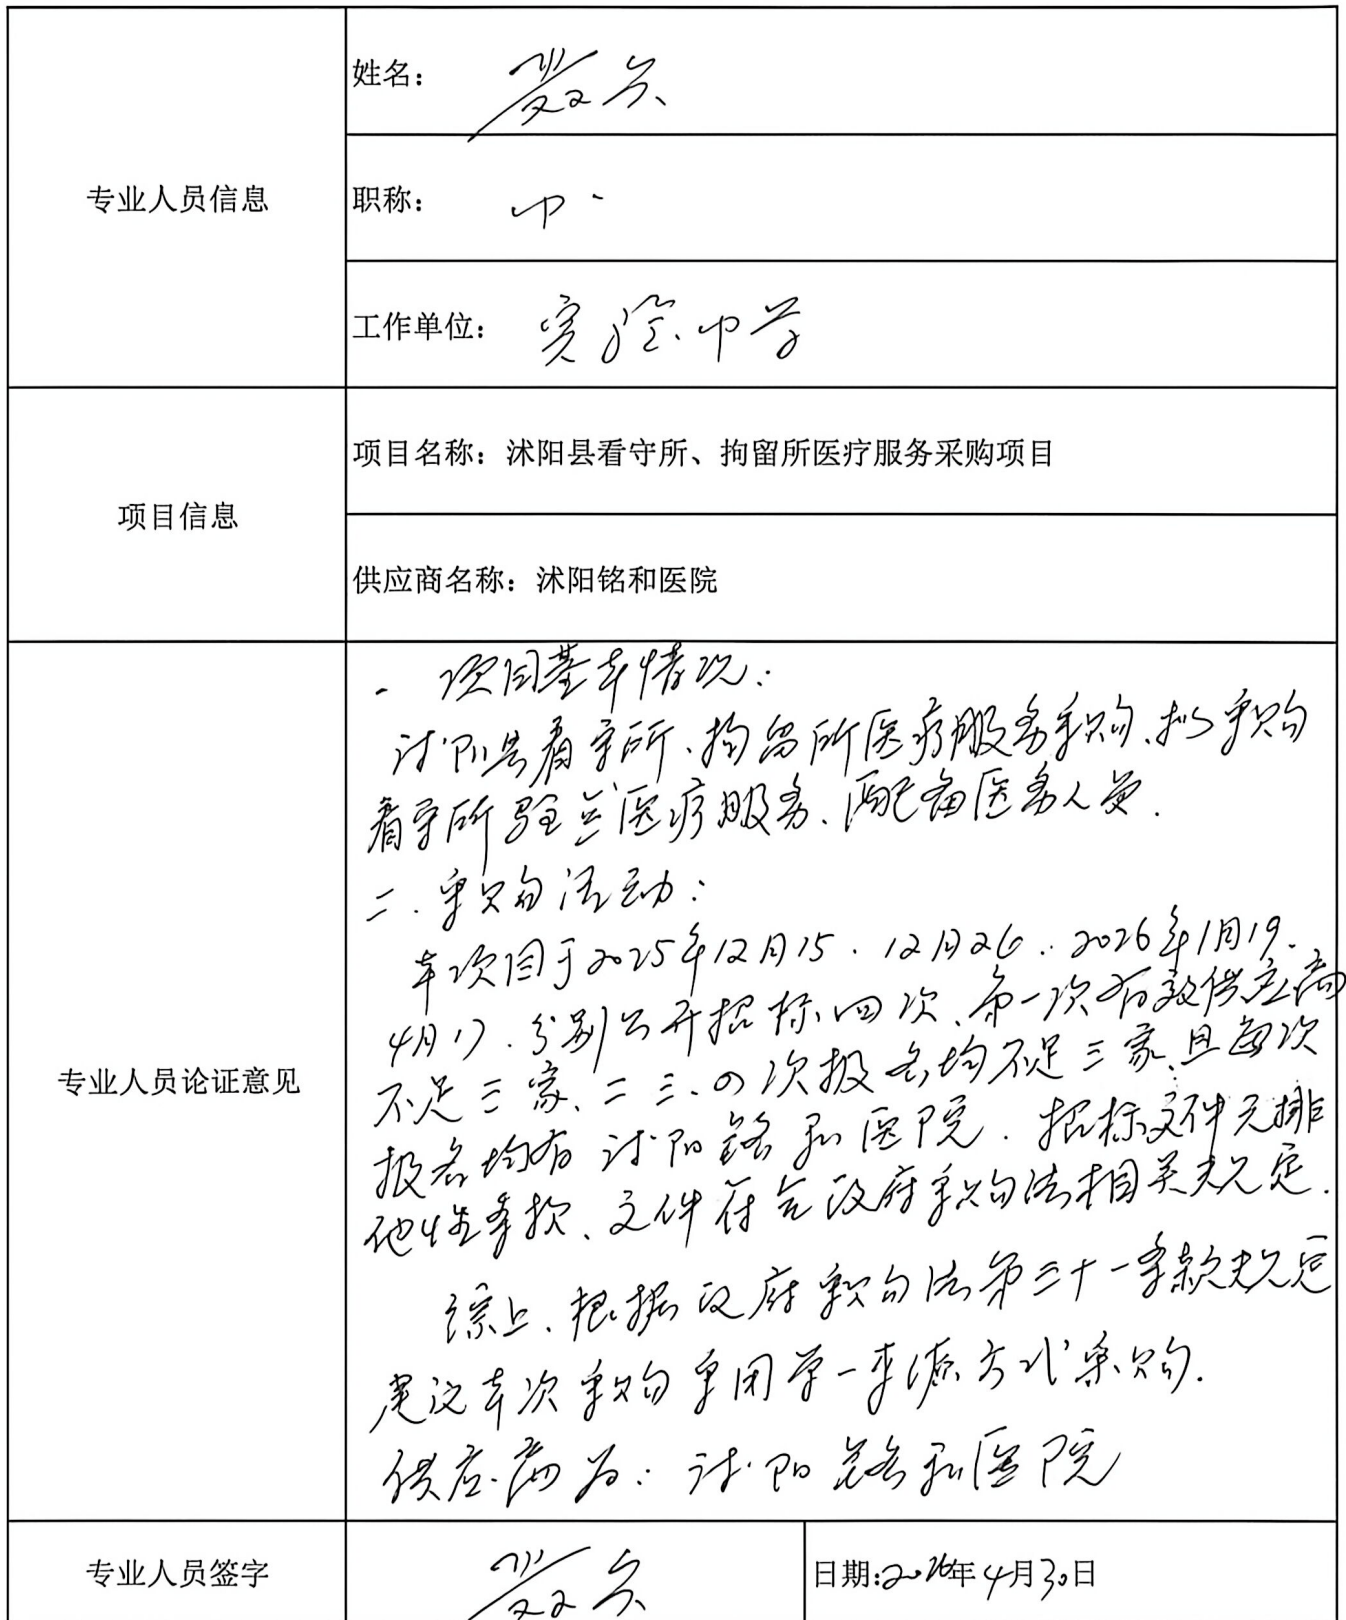 专业人员信息
姓名：
职称：中
工作单位：实验中学
项目信息
项目名称：沭阳县看守所、拘留所医疗服务采购项目
供应商名称：沭阳铭和医院
专业人员论证意见
一 项目基本情况：
沭阳县看守所、拘留所医疗服务采购、拟采购
看守所驻兰医疗服务、配备医务人员.
二.采购活动：
本项目于2025年12月15.12月26.2026年1月19.
4月17.分别公开招标四次、第一次有效供应商
不足三家、二三.四次报名均不足三家、且每次
报名均有沭阳铭和医院.招标文件无排
他性条款、文件符合政府采购法相关规定.
综上、根据政府采购法第三十一条款规定
建议本次采购采用单一来源方式采购.
供应商为：沭阳铭和医院
专业人员签字
日期:2026年4月30日